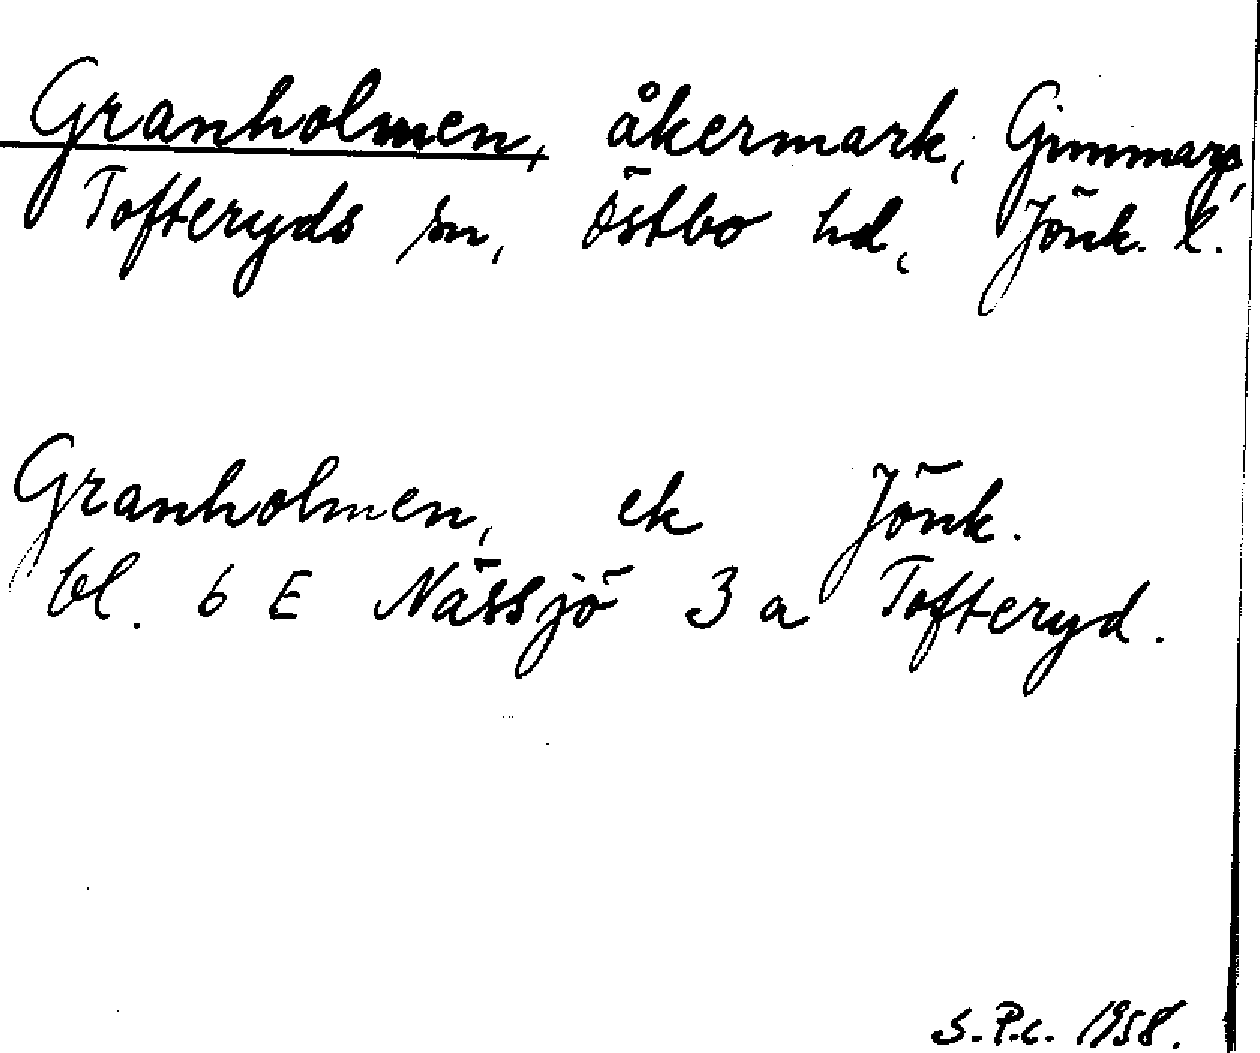 Granholmen, åkermark, Gimmarp,
Tofteryds sn, Östbo hd, Jönk. l.
Granholmen, ek Jönk.
bl. 6 E Nässjö 3 a Tofteryd.
S.P.C. 1958.